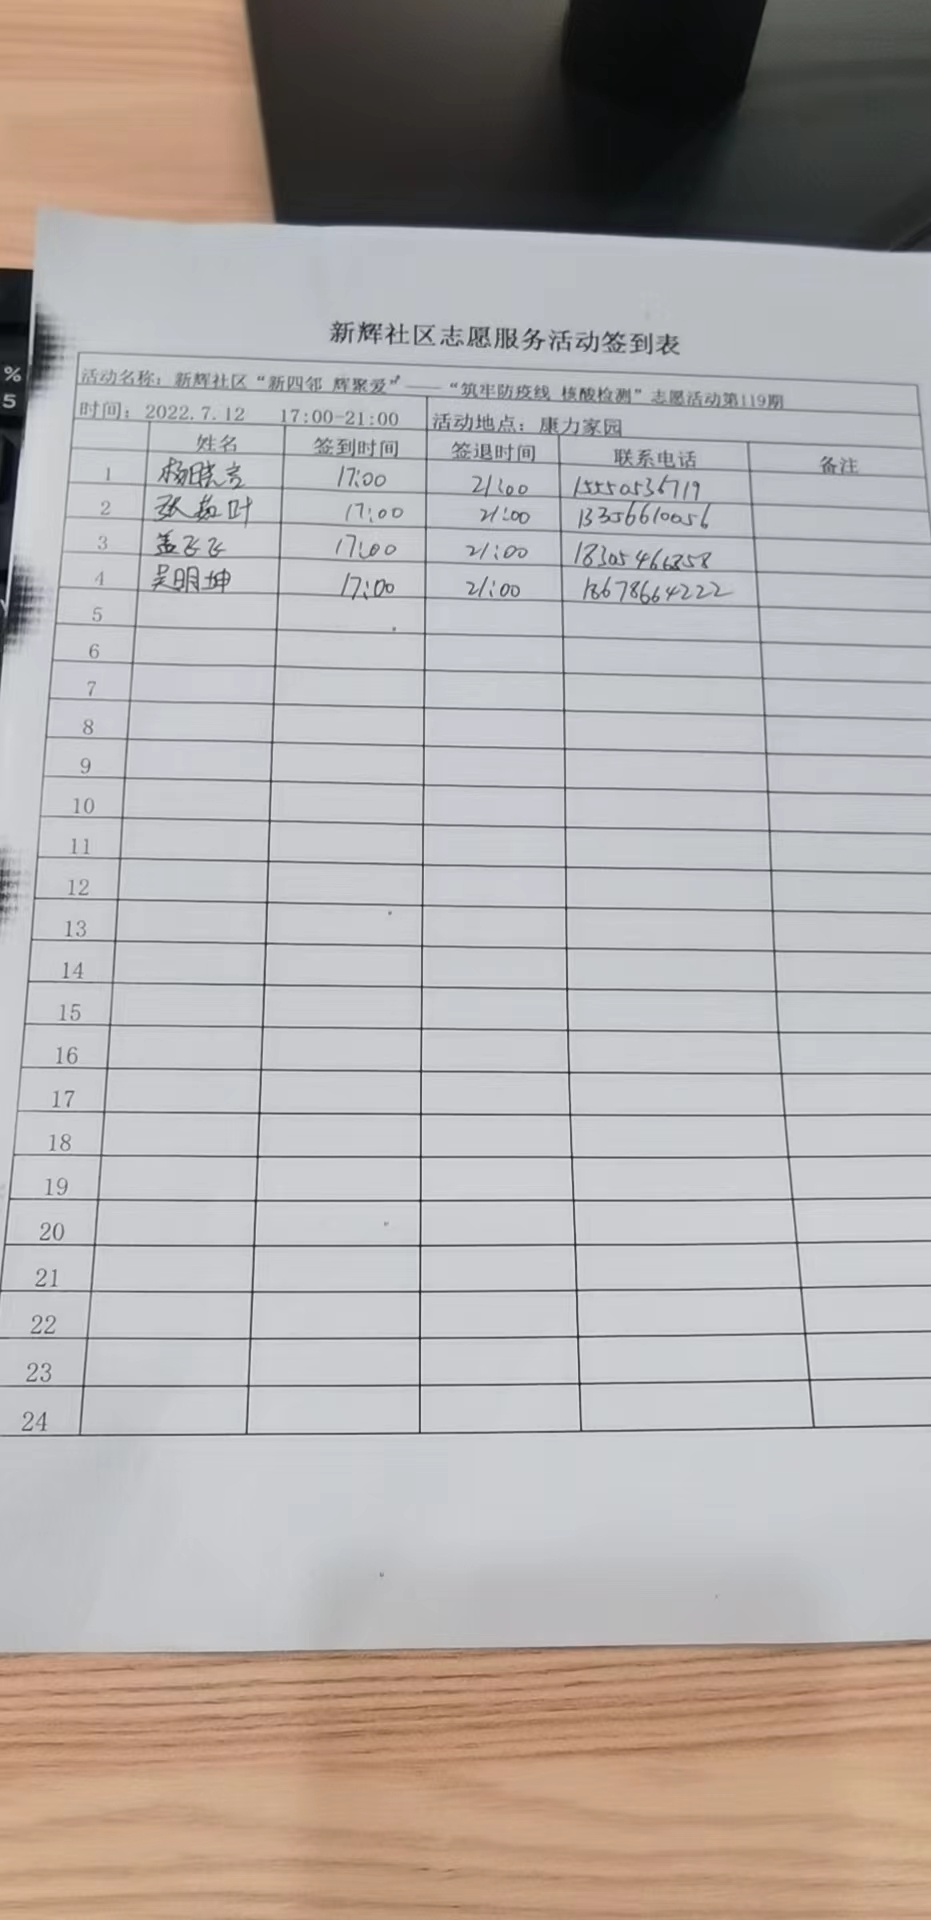 %
5
新辉社区志愿服务活动签到表
活动名称：新辉社区“新四邻 辉聚爱”——“筑牢防疫线 核酸检测”志愿活动第119期
时间：2022.7.12 17:00-21:00 活动地点：康力家园
姓名 签到时间 签退时间 联系电话 备注
1 杨晓亮 17:00 21:00 15550536719
2 张 叶 17:00 21:00 13356610056
3 孟飞飞 17:00 21:00 18305466858
4 吴明坤 17:00 21:00 18678664222
5
6
7
8
9
10
11
12
13
14
15
16
17
18
19
20
21
22
23
24